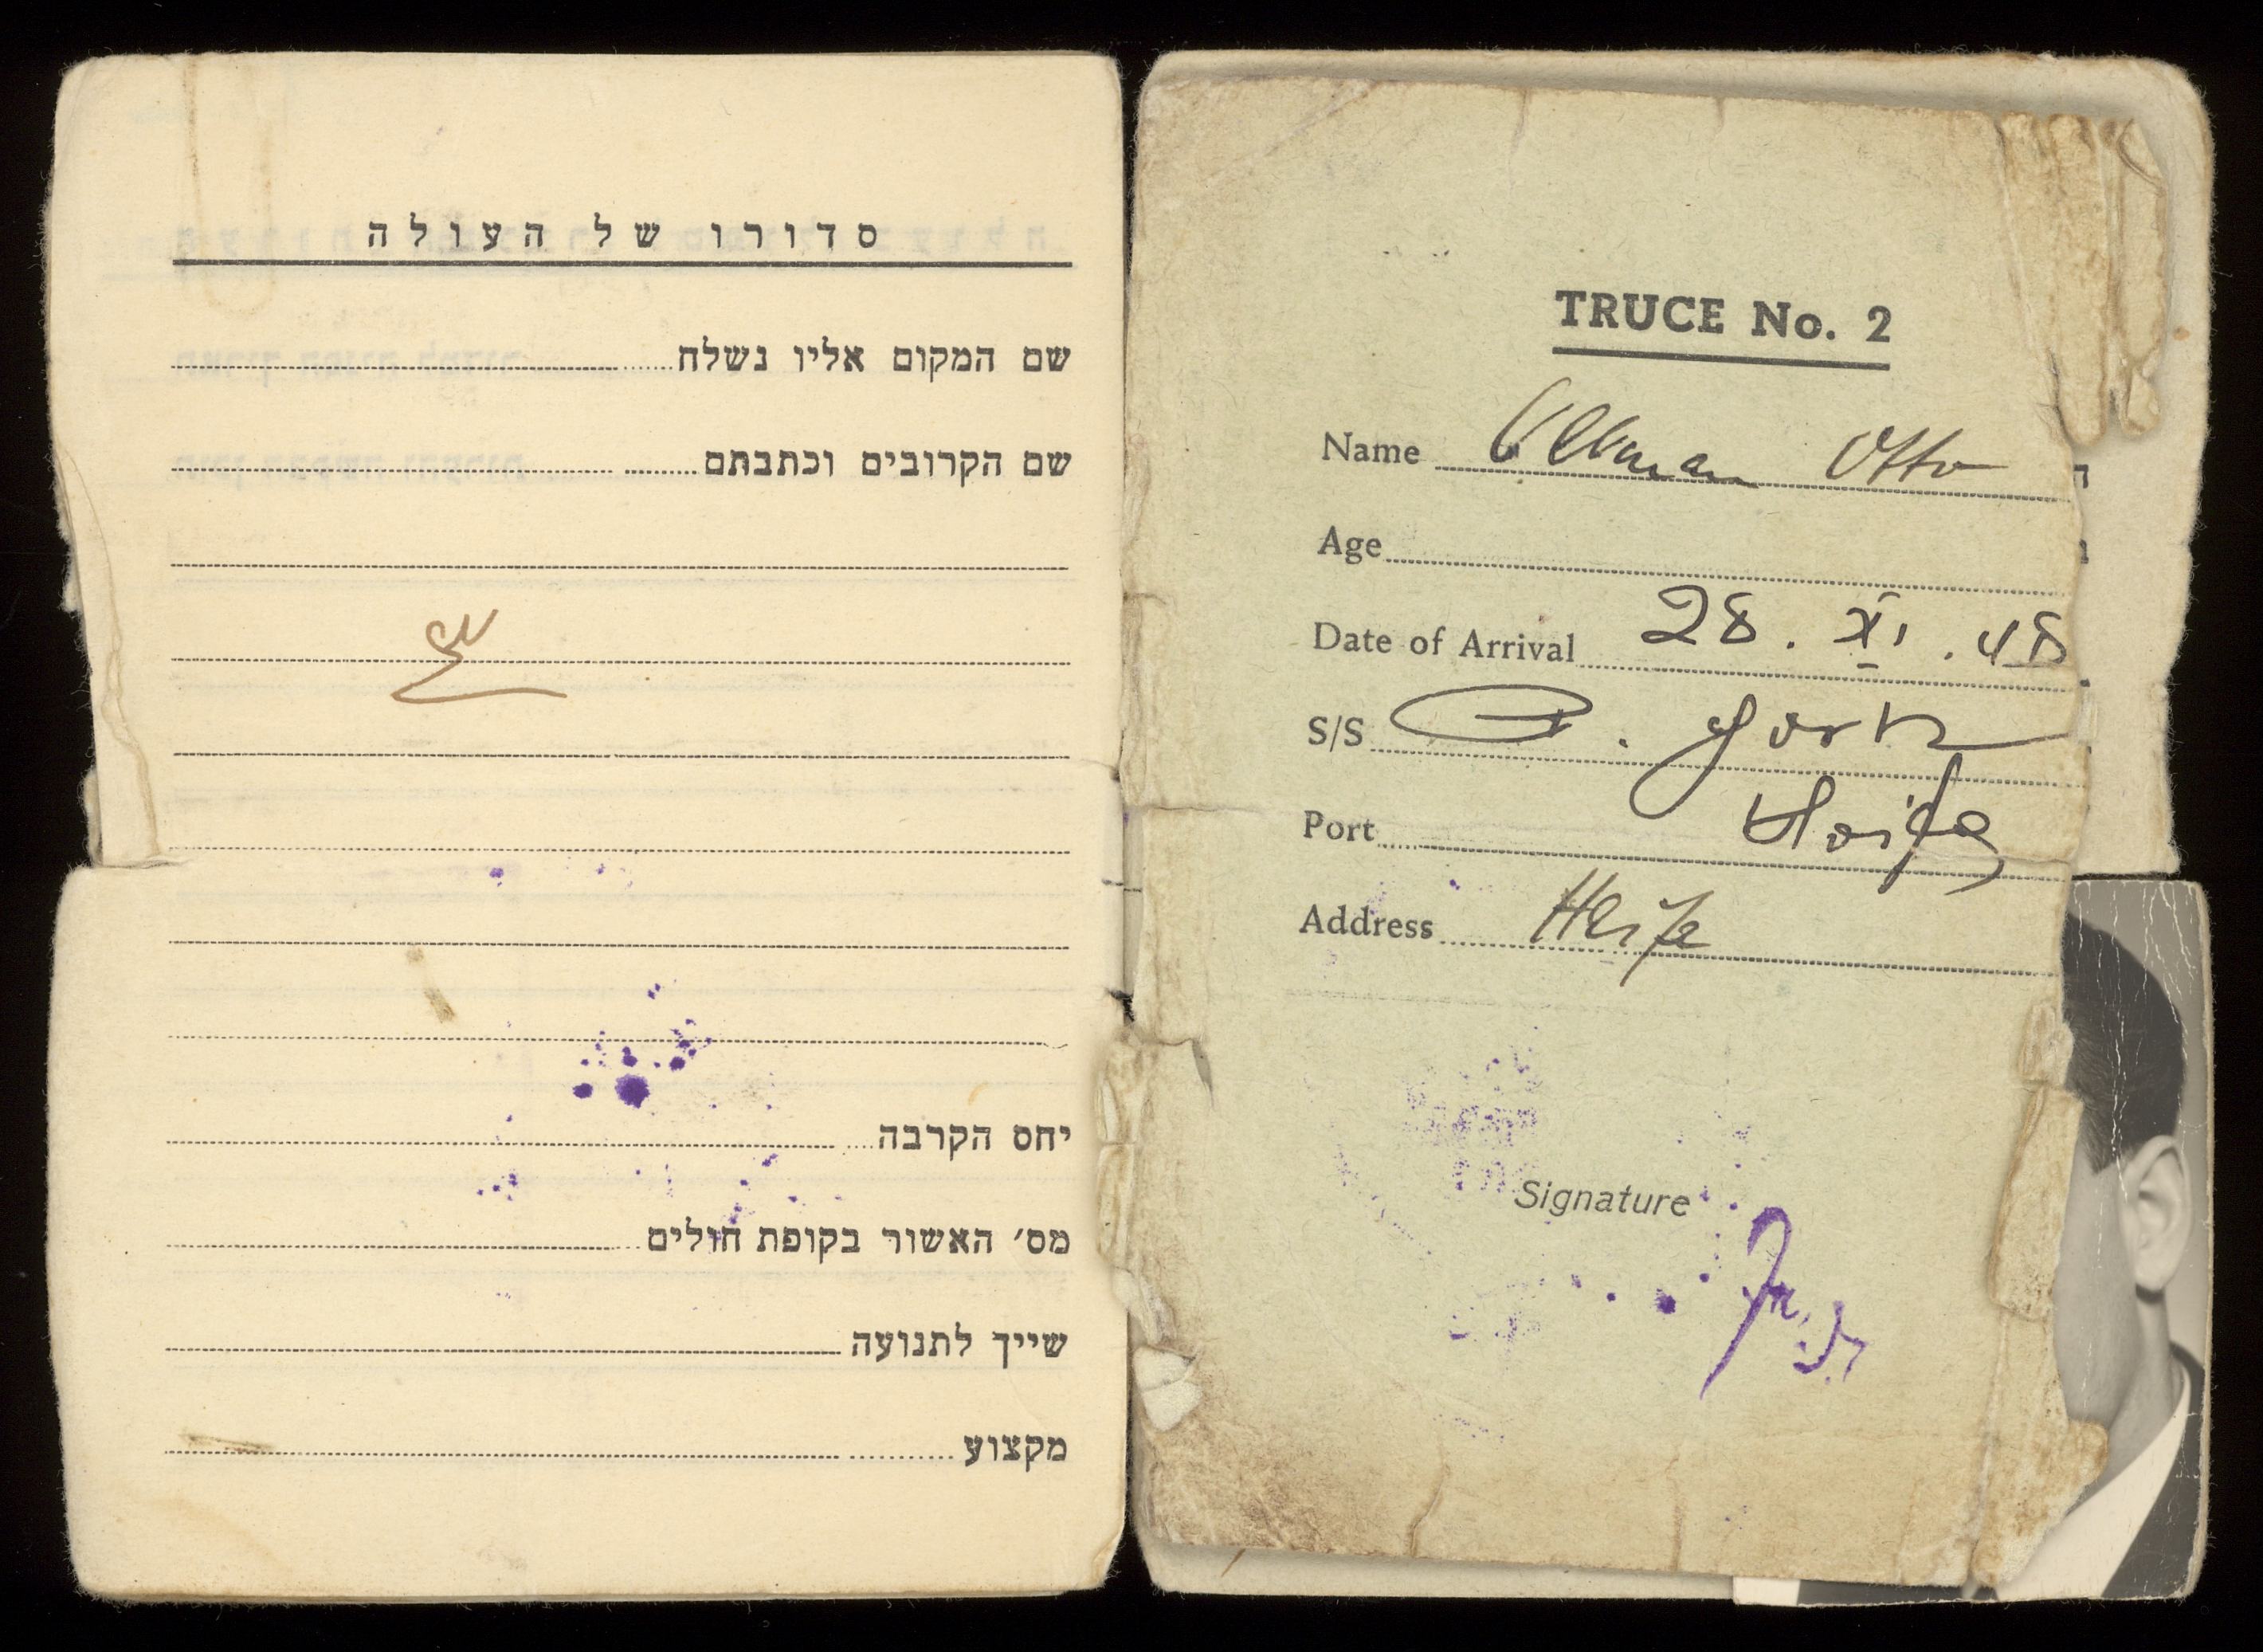 סדורו של העולה
שם המקום אליו נשלח
שם הקרובים וכתבתם
יחס הקרבה
מס׳ האשור בקופת חולים
שייך לתנועה
מקצוע
TRUCE No. 2
Name Ullman Otto
Age
Date of Arrival 28. XI. 48
S/S . York
Port Haifa
Address Haifa
Signature